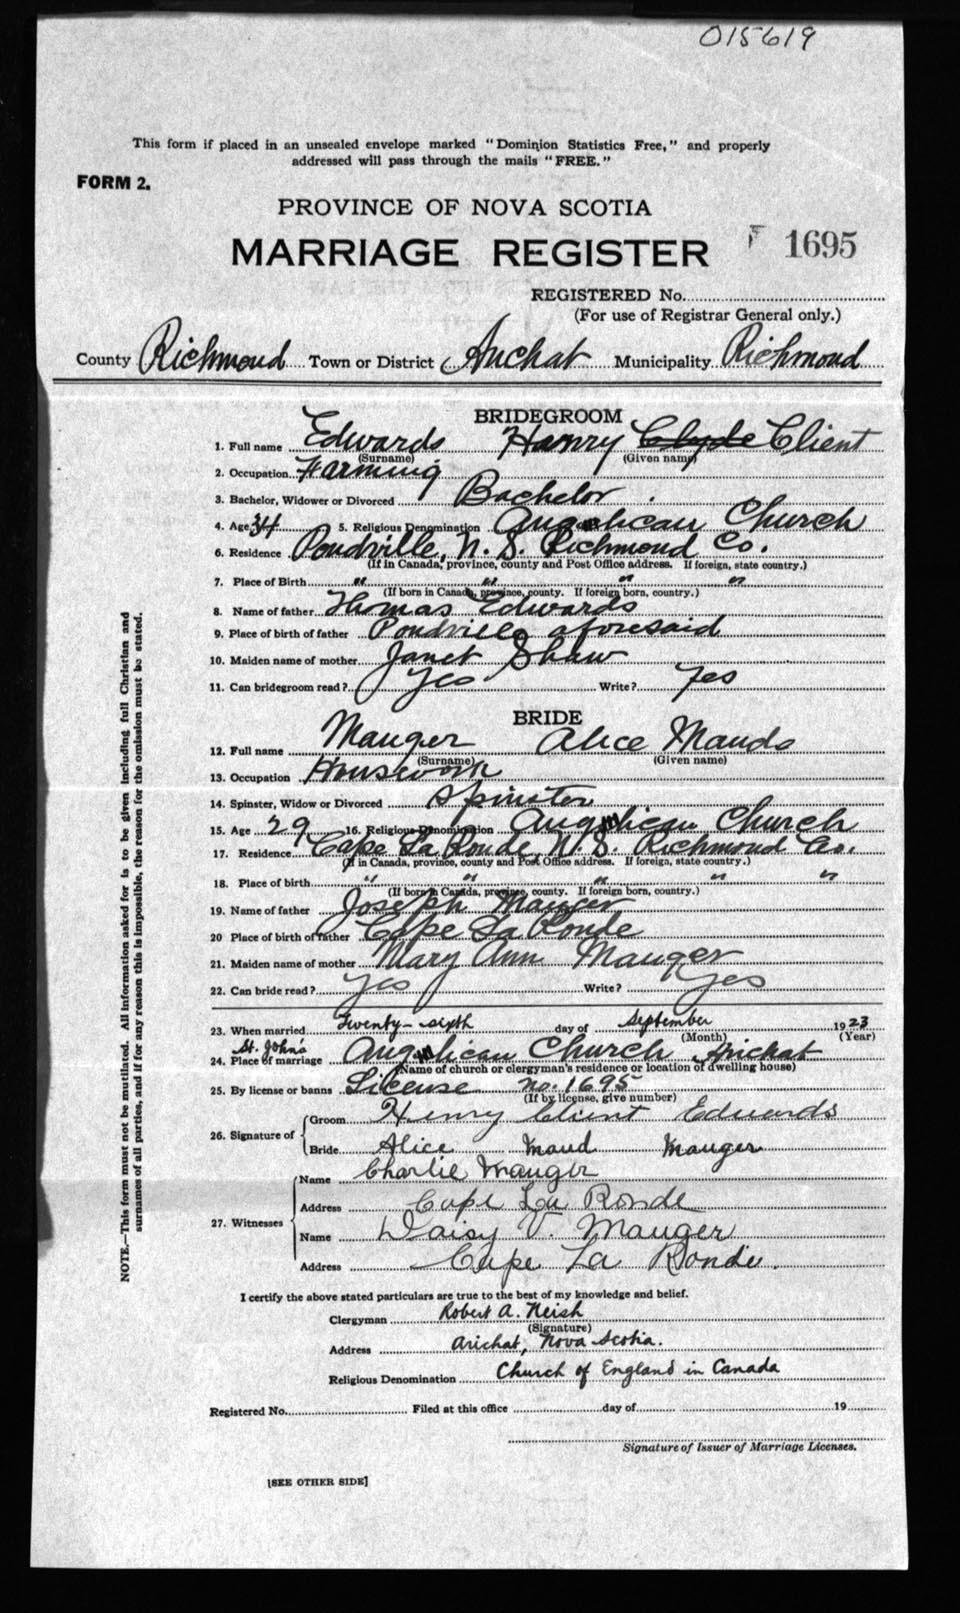 015619
This form if placed in an unsealed envelope marked "Dominion Statistics Free," and properly
addressed will pass through the mails "FREE."
FORM 2.
PROVINCE OF NOVA SCOTIA
MARRIAGE REGISTER 1695
REGISTERED No.
(For use of Registrar General only.)
County Richmond Town or District Arichat Municipality Richmond
BRIDEGROOM
1. Full name Edwards Henry Clyde Client
(Surname) (Given name)
2. Occupation Farming
3. Bachelor, Widower or Divorced Bachelor.
4. Age 34 5. Religious Denomination Anglican Church
6. Residence Pondville, N. S. Richmond Co.
(If in Canada, province, county and Post Office address. If foreign, state country.)
7. Place of Birth " " " "
(If born in Canada, province, county. If foreign born, country.)
8. Name of father Thomas Edwards
9. Place of birth of father Pondville aforesaid
10. Maiden name of mother Janet Shaw
11. Can bridegroom read? Yes Write? Yes
BRIDE
12. Full name Mauger Alice Maude
(Surname) (Given name)
13. Occupation Housework
14. Spinster, Widow or Divorced Spinster
15. Age 29 16. Religious Denomination Anglican Church
17. Residence Cape La Ronde, N. S. Richmond Co.
(If in Canada, province, county and Post Office address. If foreign, state country.)
18. Place of birth " " " " "
(If born in Canada, province, county. If foreign born, country.)
19. Name of father Joseph Mauger
20 Place of birth of father Cape La Ronde
21. Maiden name of mother Mary Ann Mauger
22. Can bride read? Yes Write? Yes
23. When married Twenty-sixth day of September 1923
(Month) (Year)
St. John's
24. Place of marriage Anglican Church Arichat
(Name of church or clergyman's residence or location of dwelling house)
25. By license or banns License no. 1695
(If by license, give number)
26. Signature of Groom Henry Client Edwards
Bride Alice Maud Mauger
27. Witnesses Name Charlie Mauger
Address Cape La Ronde
Name Daisy V. Mauger
Address Cape La Ronde.
I certify the above stated particulars are true to the best of my knowledge and belief.
Clergyman Robert A. Neish
(Signature)
Address Arichat, Nova Scotia.
Religious Denomination Church of England in Canada
Registered No. Filed at this office day of 19
Signature of Issuer of Marriage Licenses.
[SEE OTHER SIDE]
NOTE.—This form must not be mutilated. All information asked for is to be given including full Christian and
surnames of all parties, and if for any reason this is impossible, the reason for the omission must be stated.